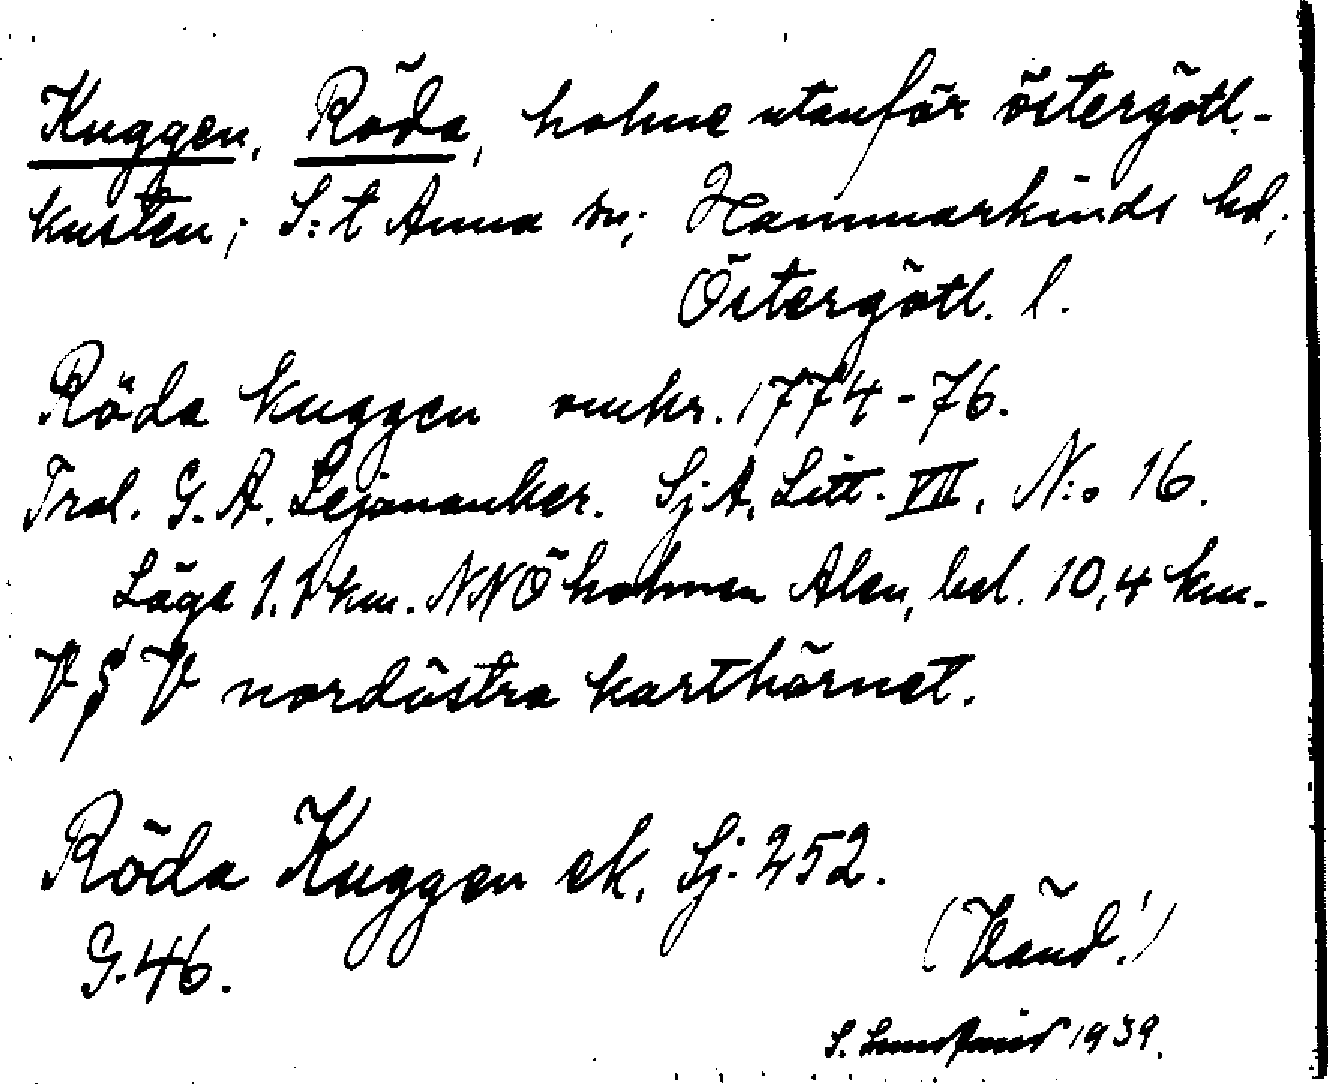 Kuggen, Röda, holme utanför östergötl.-
kusten; S:t Anna sn; Hammarkinds hd;
Östergötl. l.
Röda kuggen omkr. 1774-76.
Trol. G. A. Lejonanker. Sj.A. Litt. VII. N:o 16.
Läge 1.1 km. NNÖ holmen Alen, bel. 10,4 km.
V § V nordöstra karthörnet.
Röda Kuggen ek. Sj. 252.
G. 46.
(Vänd!)
S. 1939.